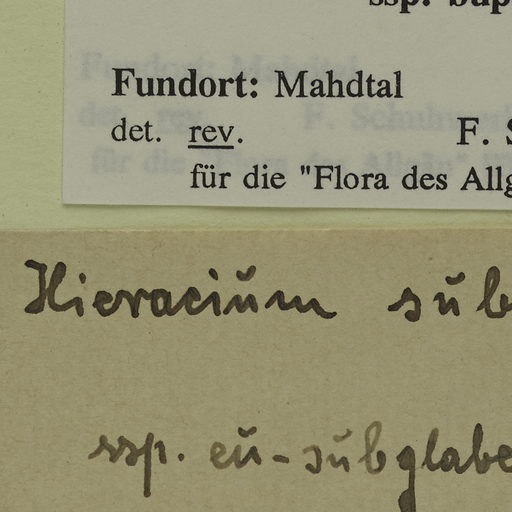 ssp. bup
Fundort: Mahdtal
det. rev. F. S
für die "Flora des Allg
Hieracium sub
ssp. eu-subglabe